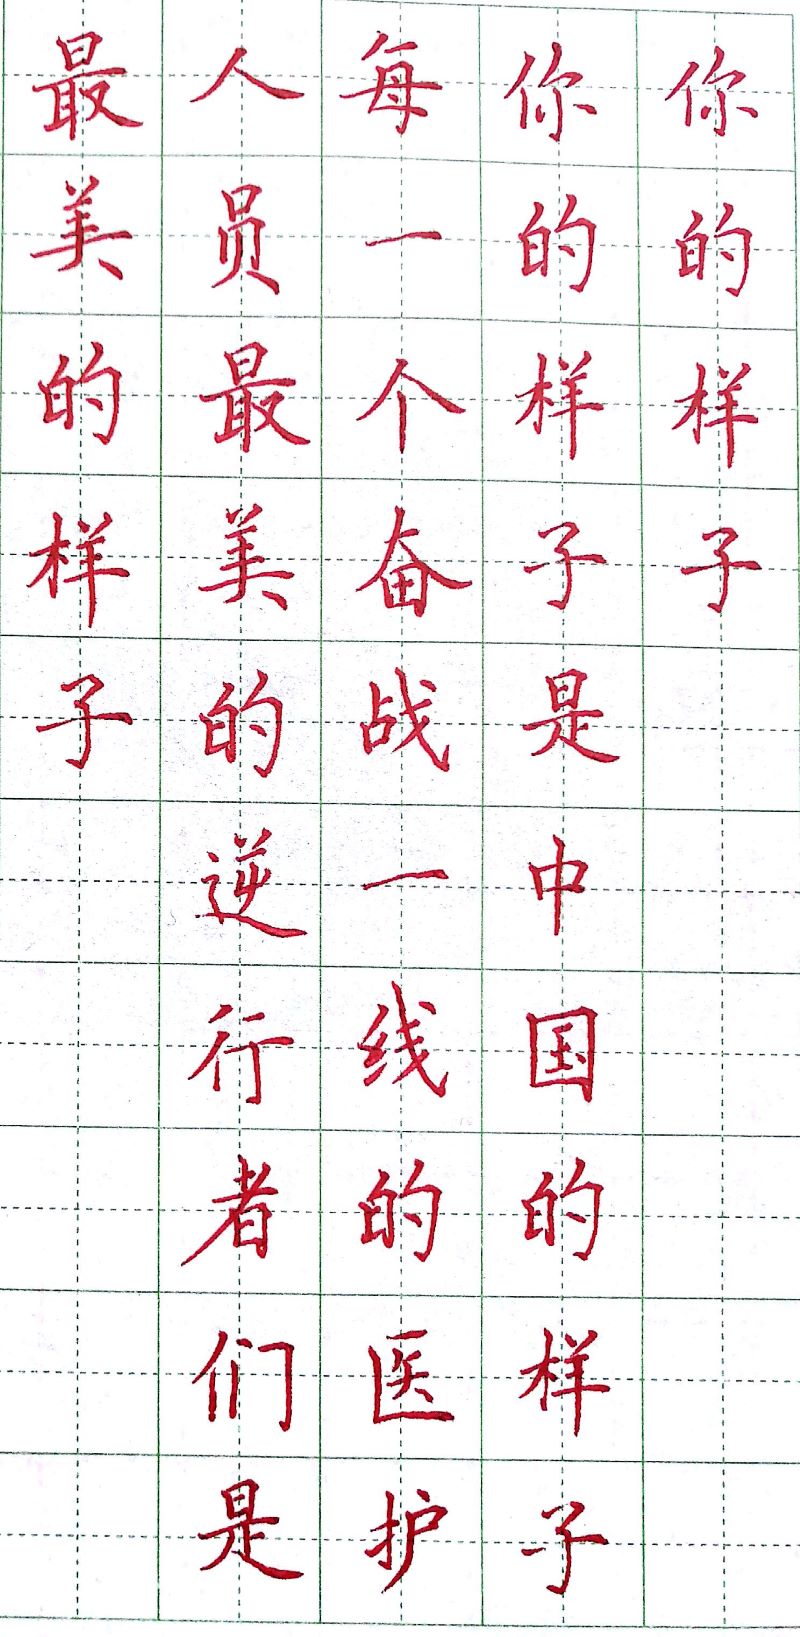 你的样子
你的样子是中国的样子
每一个奋战一线的医护
人员最美的逆行者们是
最美的样子